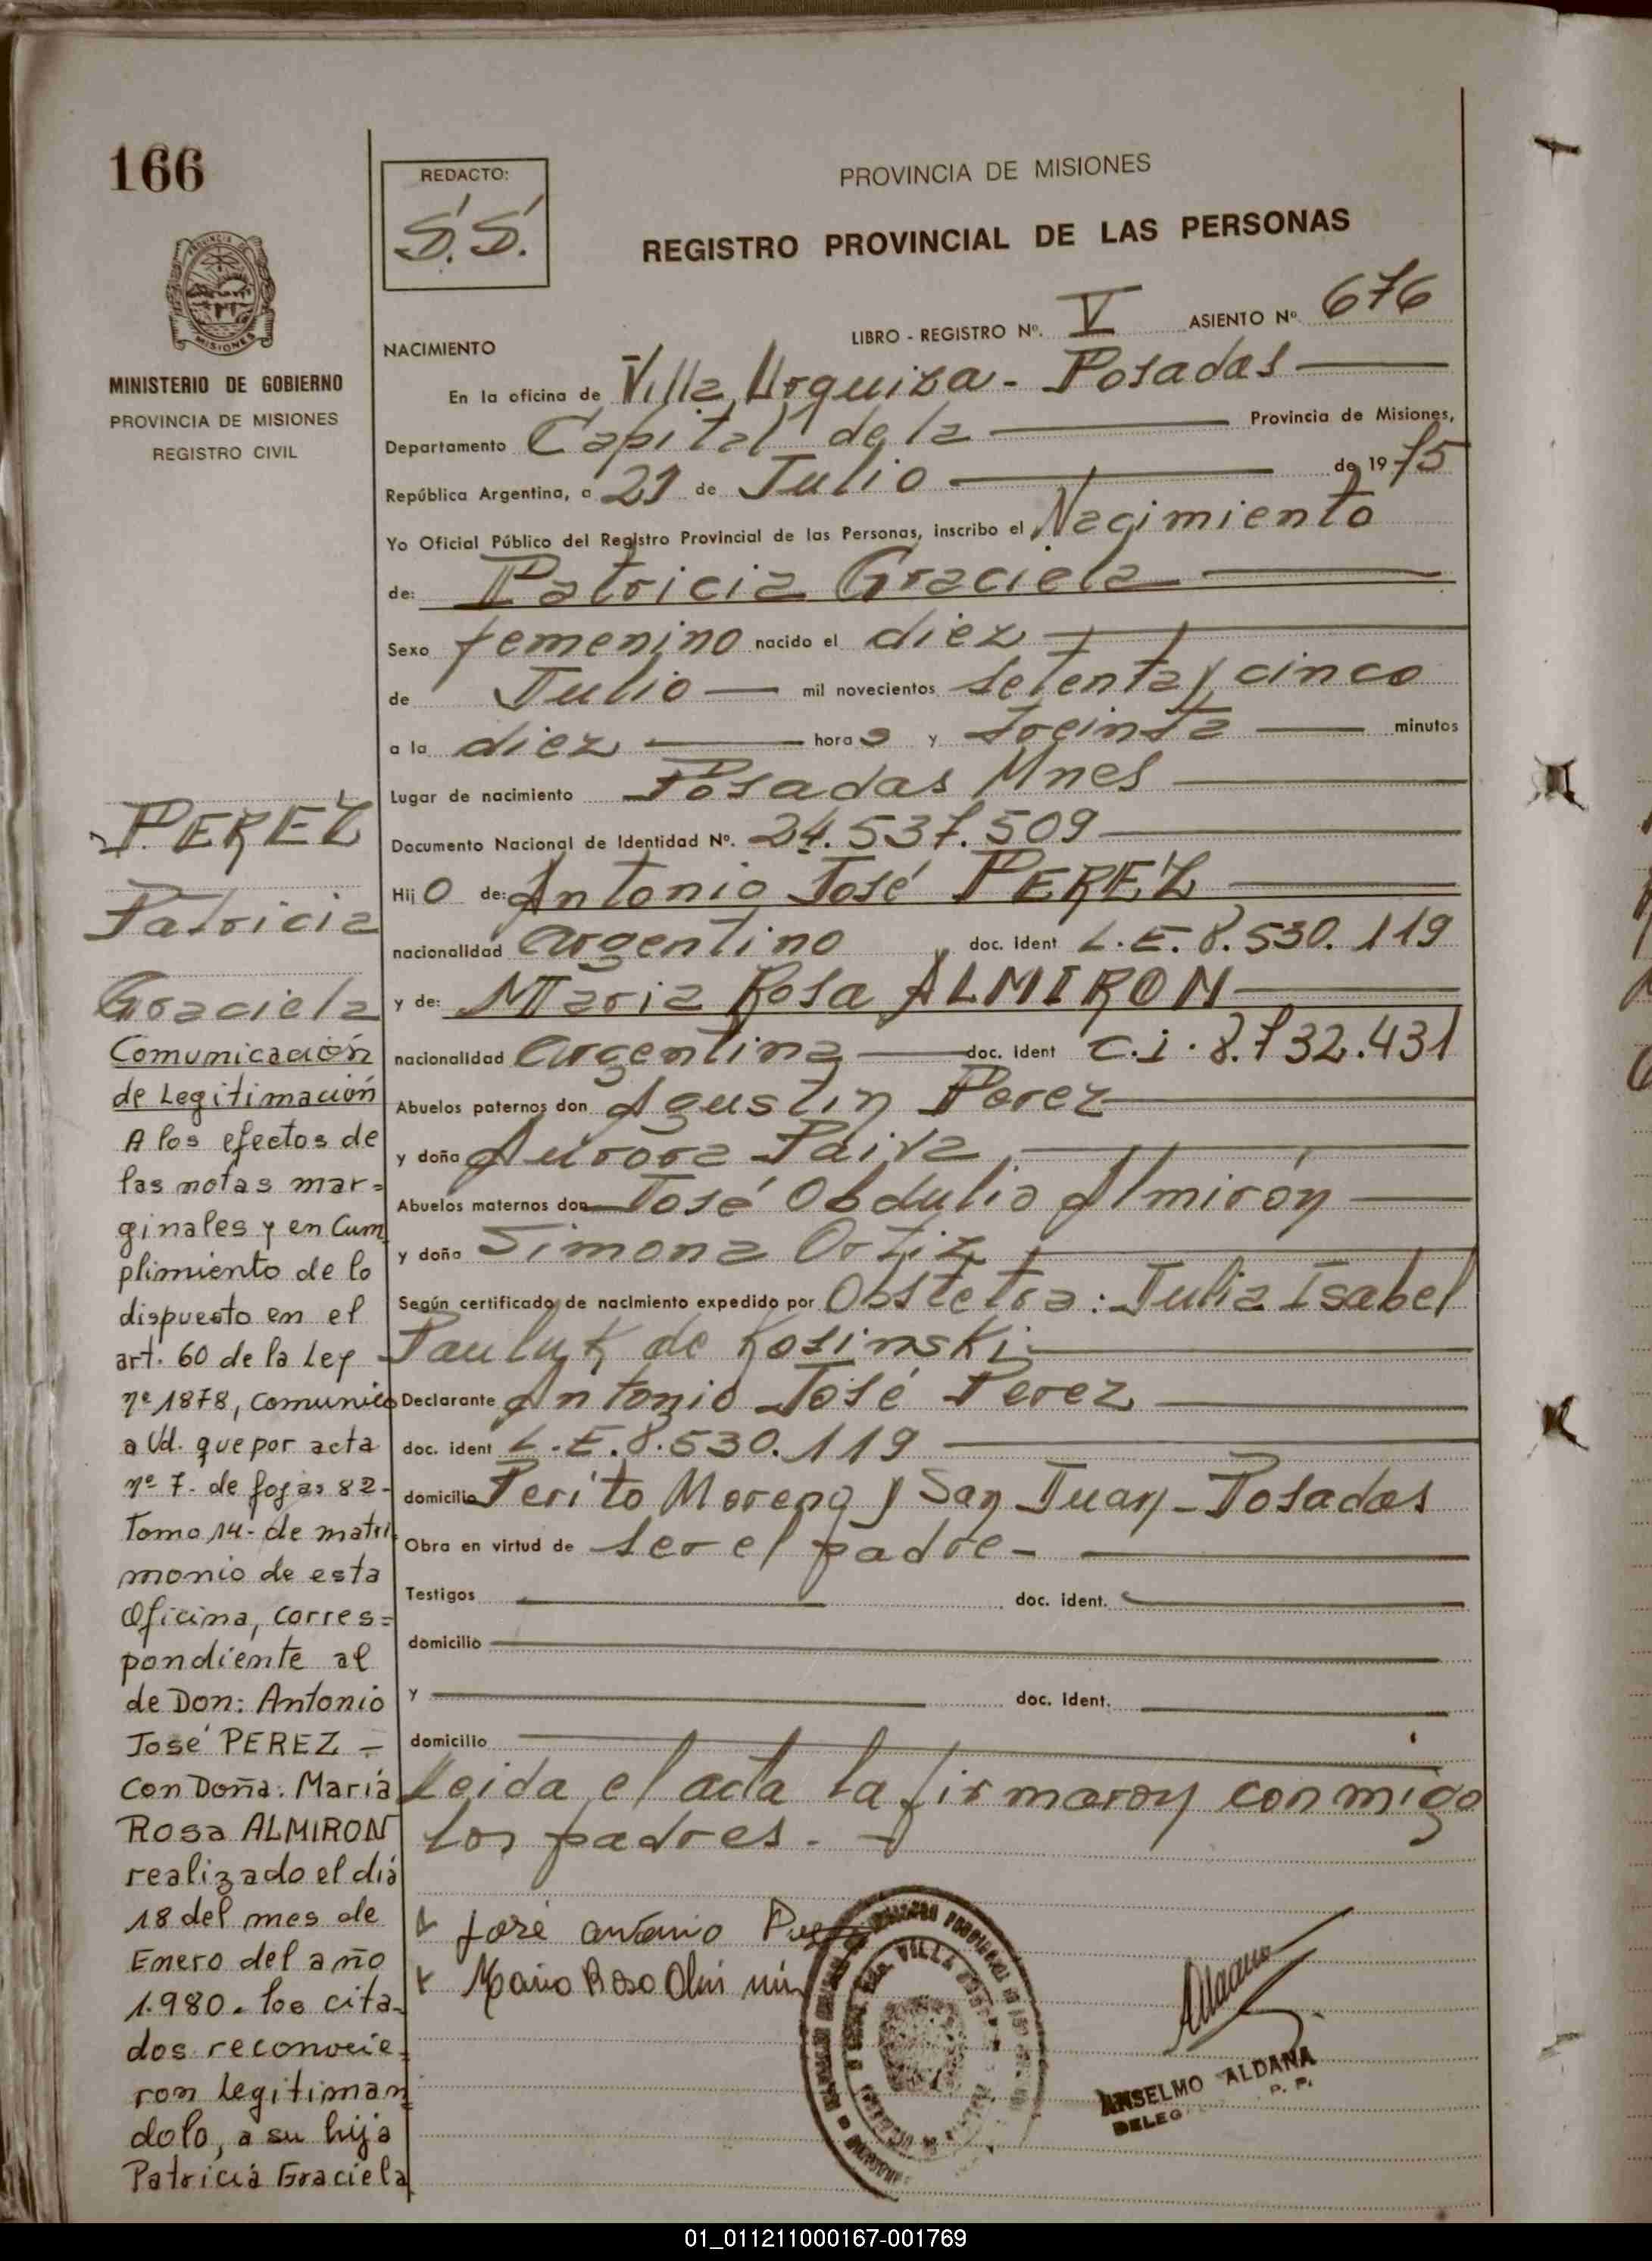 166
REDACTO:
S.S.
PROVINCIA DE MISIONES
REGISTRO PROVINCIAL DE LAS PERSONAS
MISIONES
MINISTERIO DE GOBIERNO
PROVINCIA DE MISIONES
REGISTRO CIVIL
LIBRO - REGISTRO Nº. V ASIENTO Nº 676
NACIMIENTO
En la oficina de Villa Urquiza - Posadas
Departamento Capital de la Provincia de Misiones,
República Argentina, a 21 de Julio de 1975
Yo Oficial Público del Registro Provincial de las Personas, inscribo el Nacimiento
de: Patricia Graciela
Sexo femenino nacido el diez
de Julio mil novecientos setenta y cinco
a la diez horas y treinta minutos
Lugar de nacimiento Posadas Mnes
Documento Nacional de Identidad Nº. 24.537.509
Hijo de: Antonio José PEREZ
nacionalidad argentino doc. ident L.E. 8.530.119
y de: Maria Rosa ALMIRON
nacionalidad argentina doc. ident C.i. 8.732.431
Abuelos paternos don Agustin Perez
y doña Aurora Paiva
Abuelos maternos don José Obdulio Almirón
y doña Simona Ortiz
Según certificado de nacimiento expedido por Obstetra: Julia Isabel
Pauluk de Kosinski
Declarante Antonio José Perez
doc. ident L.E. 8.530.119
domicilio Perito Moreno y San Juan - Posadas
Obra en virtud de ser el padre -
Testigos doc. ident.
domicilio
y doc. ident.
domicilio
Leida el acta la firmaron conmigo
los padres. -
José Antonio
ANSELMO ALDANA
DELEG P. P.
PEREZ
Patricia
Graciela
Comunicación
de Legitimación
A los efectos de
las notas mar=
ginales y en Cum
plimiento de lo
dispuesto en el
art. 60 de la Ley
nº 1878, comunico
a Ud. que por acta
nº 7- de fojas 82-
Tomo 14- de matri
monio de esta
Oficina, corres=
pondiente al
de Don: Antonio
José PEREZ -
con Doña: María
Rosa ALMIRON
realizado el día
18 del mes de
Enero del año
1.980. los cita-
dos reconocie-
ron legitiman
dolo, a su hija
Patricia Graciela
01_011211000167-001769